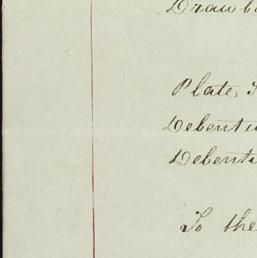 Drawb
Plate,
Debentu
Debentu
To the